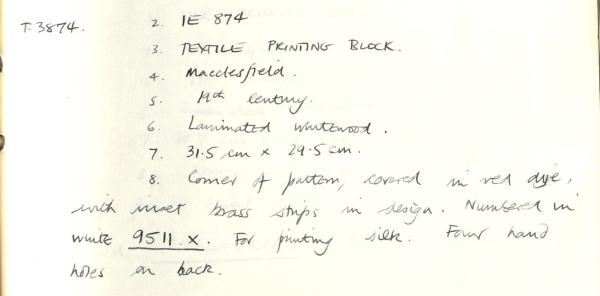 T.3874. 2. IE 874
3. TEXTILE PRINTING BLOCK.
4. Macclesfield.
5. 19th century.
6. Laminated whitewood.
7. 31.5 cm x 29.5 cm.
8. Corner of pattern, covered in red dye,
with inset brass strips in design. Numbered in
white 9511.x. For printing silk. Four hand
holes on back.